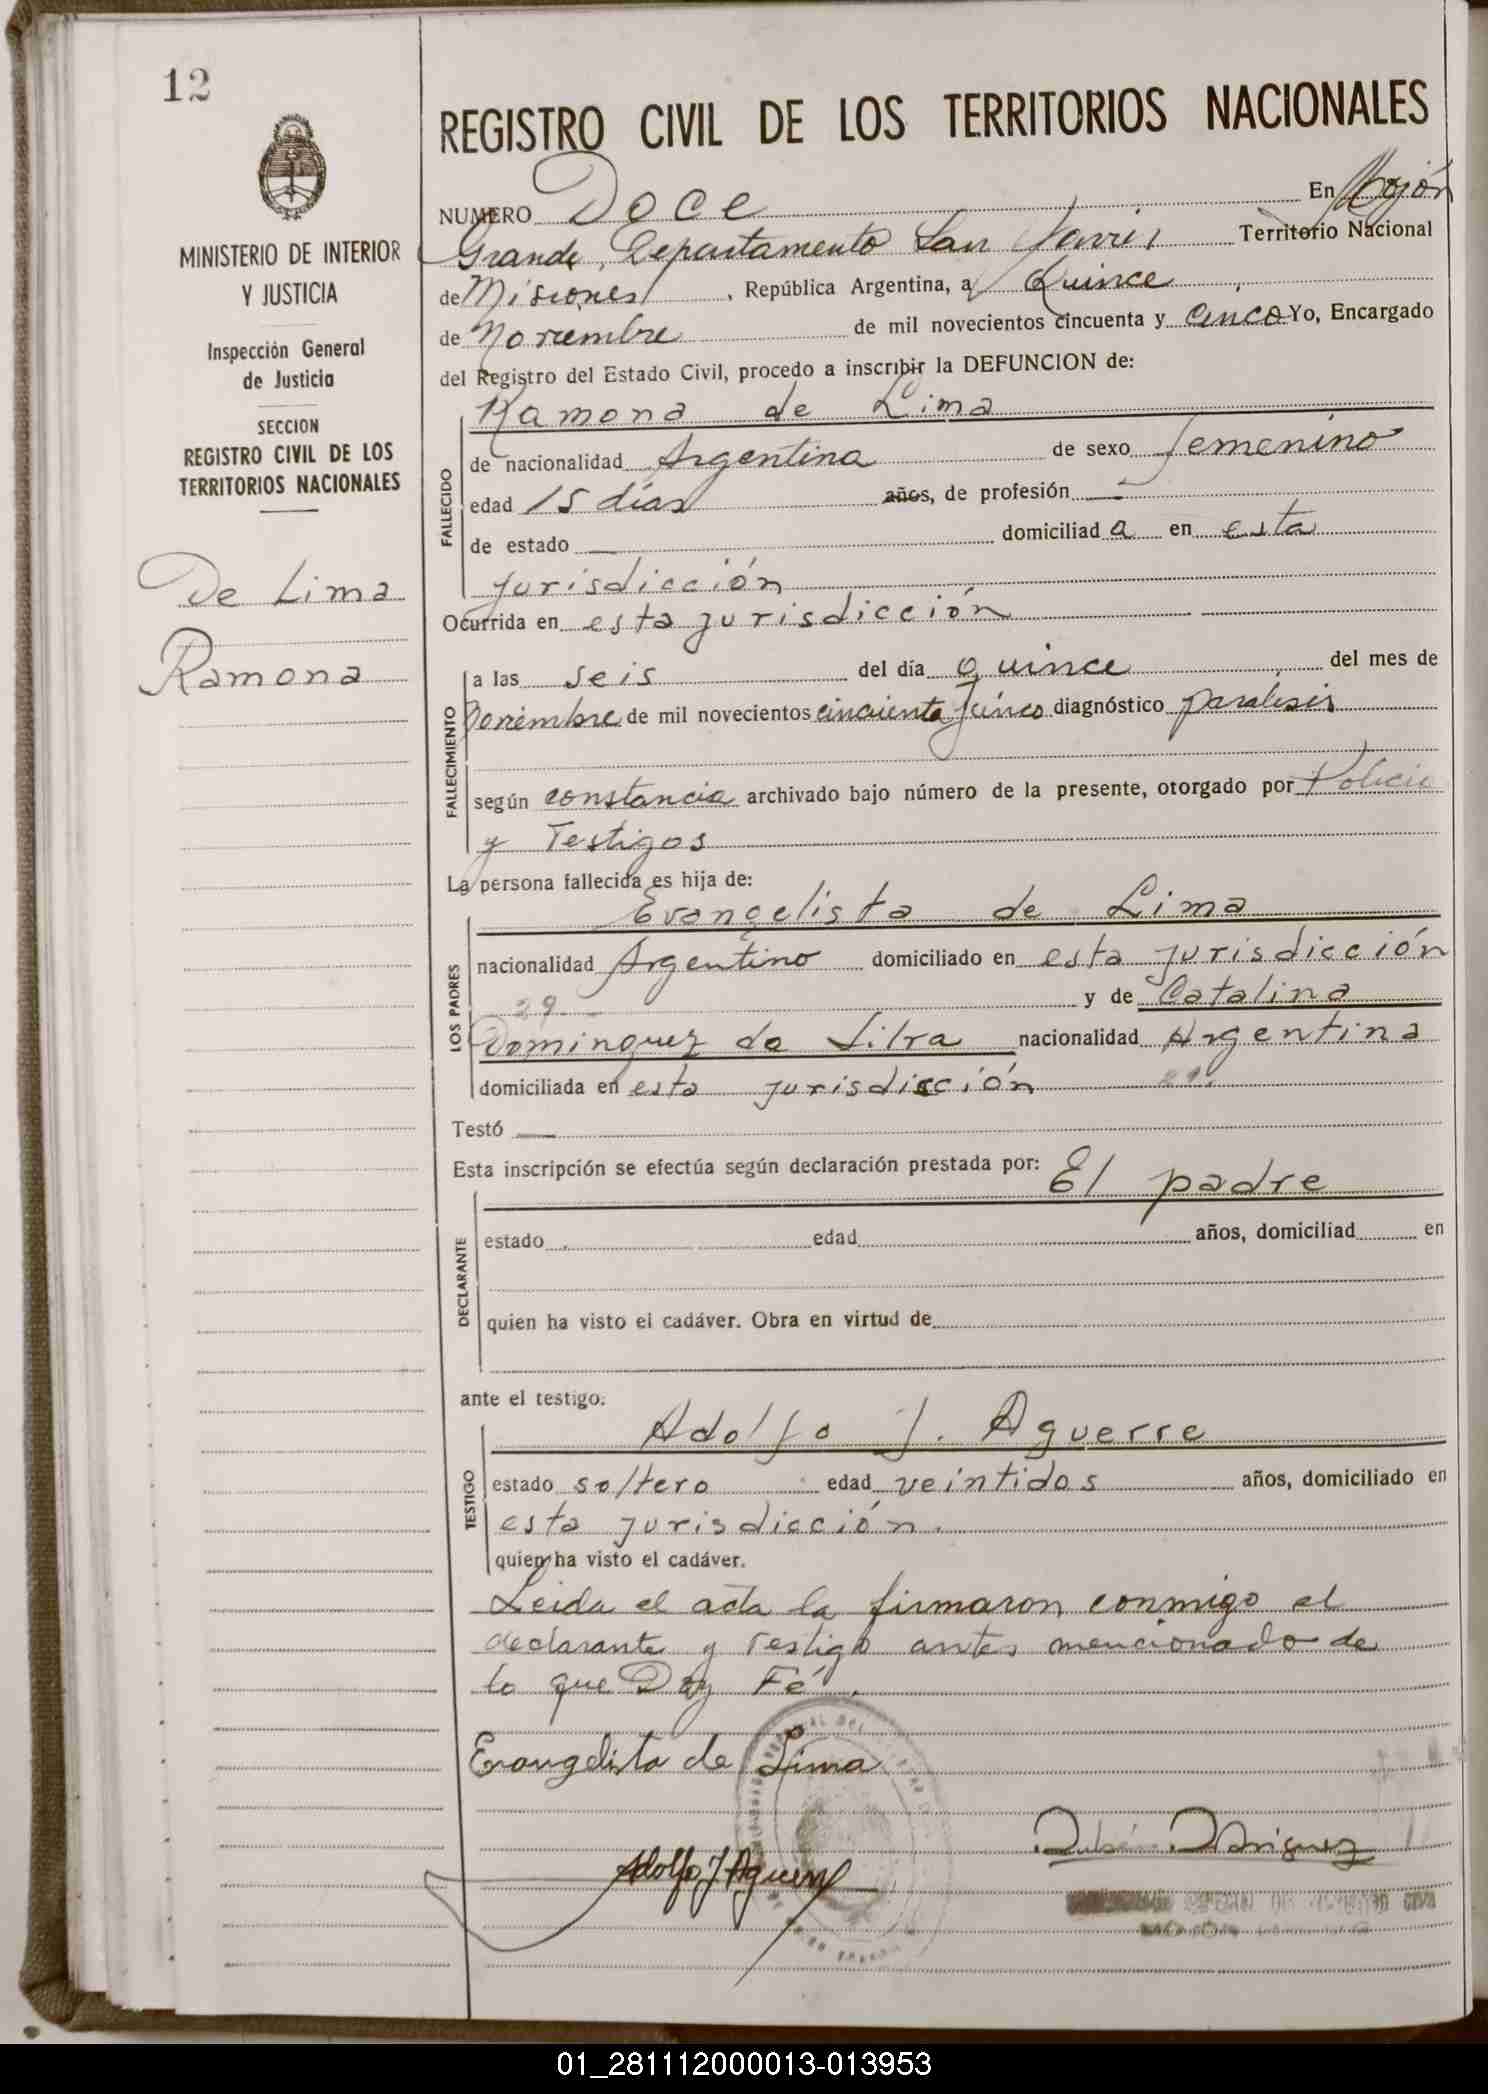 12
MINISTERIO DE INTERIOR
Y JUSTICIA
Inspección General
de Justicia
SECCION
REGISTRO CIVIL DE LOS
TERRITORIOS NACIONALES
De Lima
Ramona
REGISTRO CIVIL DE LOS TERRITORIOS NACIONALES
NUMERO Doce En Mojón
Grande, Departamento San Javier Territorio Nacional
de Misiones, República Argentina, a Quince
de Noviembre de mil novecientos cincuenta y cinco Yo, Encargado
del Registro del Estado Civil, procedo a inscribir la DEFUNCION de:
Ramona de Lima
FALLECIDO
de nacionalidad Argentina de sexo femenino
edad 15 días años, de profesión —
de estado — domiciliad a en esta
jurisdicción
Ocurrida en esta jurisdicción
FALLECIMIENTO
a las seis del día quince del mes de
Noviembre de mil novecientos cincuenta y cinco diagnóstico parálisis
según constancia archivado bajo número de la presente, otorgado por Policia
y Testigos
La persona fallecida es hija de:
LOS PADRES
Evangelista de Lima
nacionalidad Argentino domiciliado en esta jurisdicción
29 y de Catalina
Dominguez da Silva nacionalidad Argentina
domiciliada en esta jurisdicción 21.
Testó —
Esta inscripción se efectúa según declaración prestada por: El padre
DECLARANTE
estado edad años, domiciliad en
quien ha visto el cadáver. Obra en virtud de
ante el testigo:
TESTIGO
Adolfo J. Aguerre
estado soltero edad veintidos años, domiciliado en
esta jurisdicción.
quien ha visto el cadáver.
Leida el acta la firmaron conmigo el
declarante y testigo antes mencionado de
lo que Doy Fé.
Evangelista de Lima
Adolfo J Aguerre
01_281112000013-013953